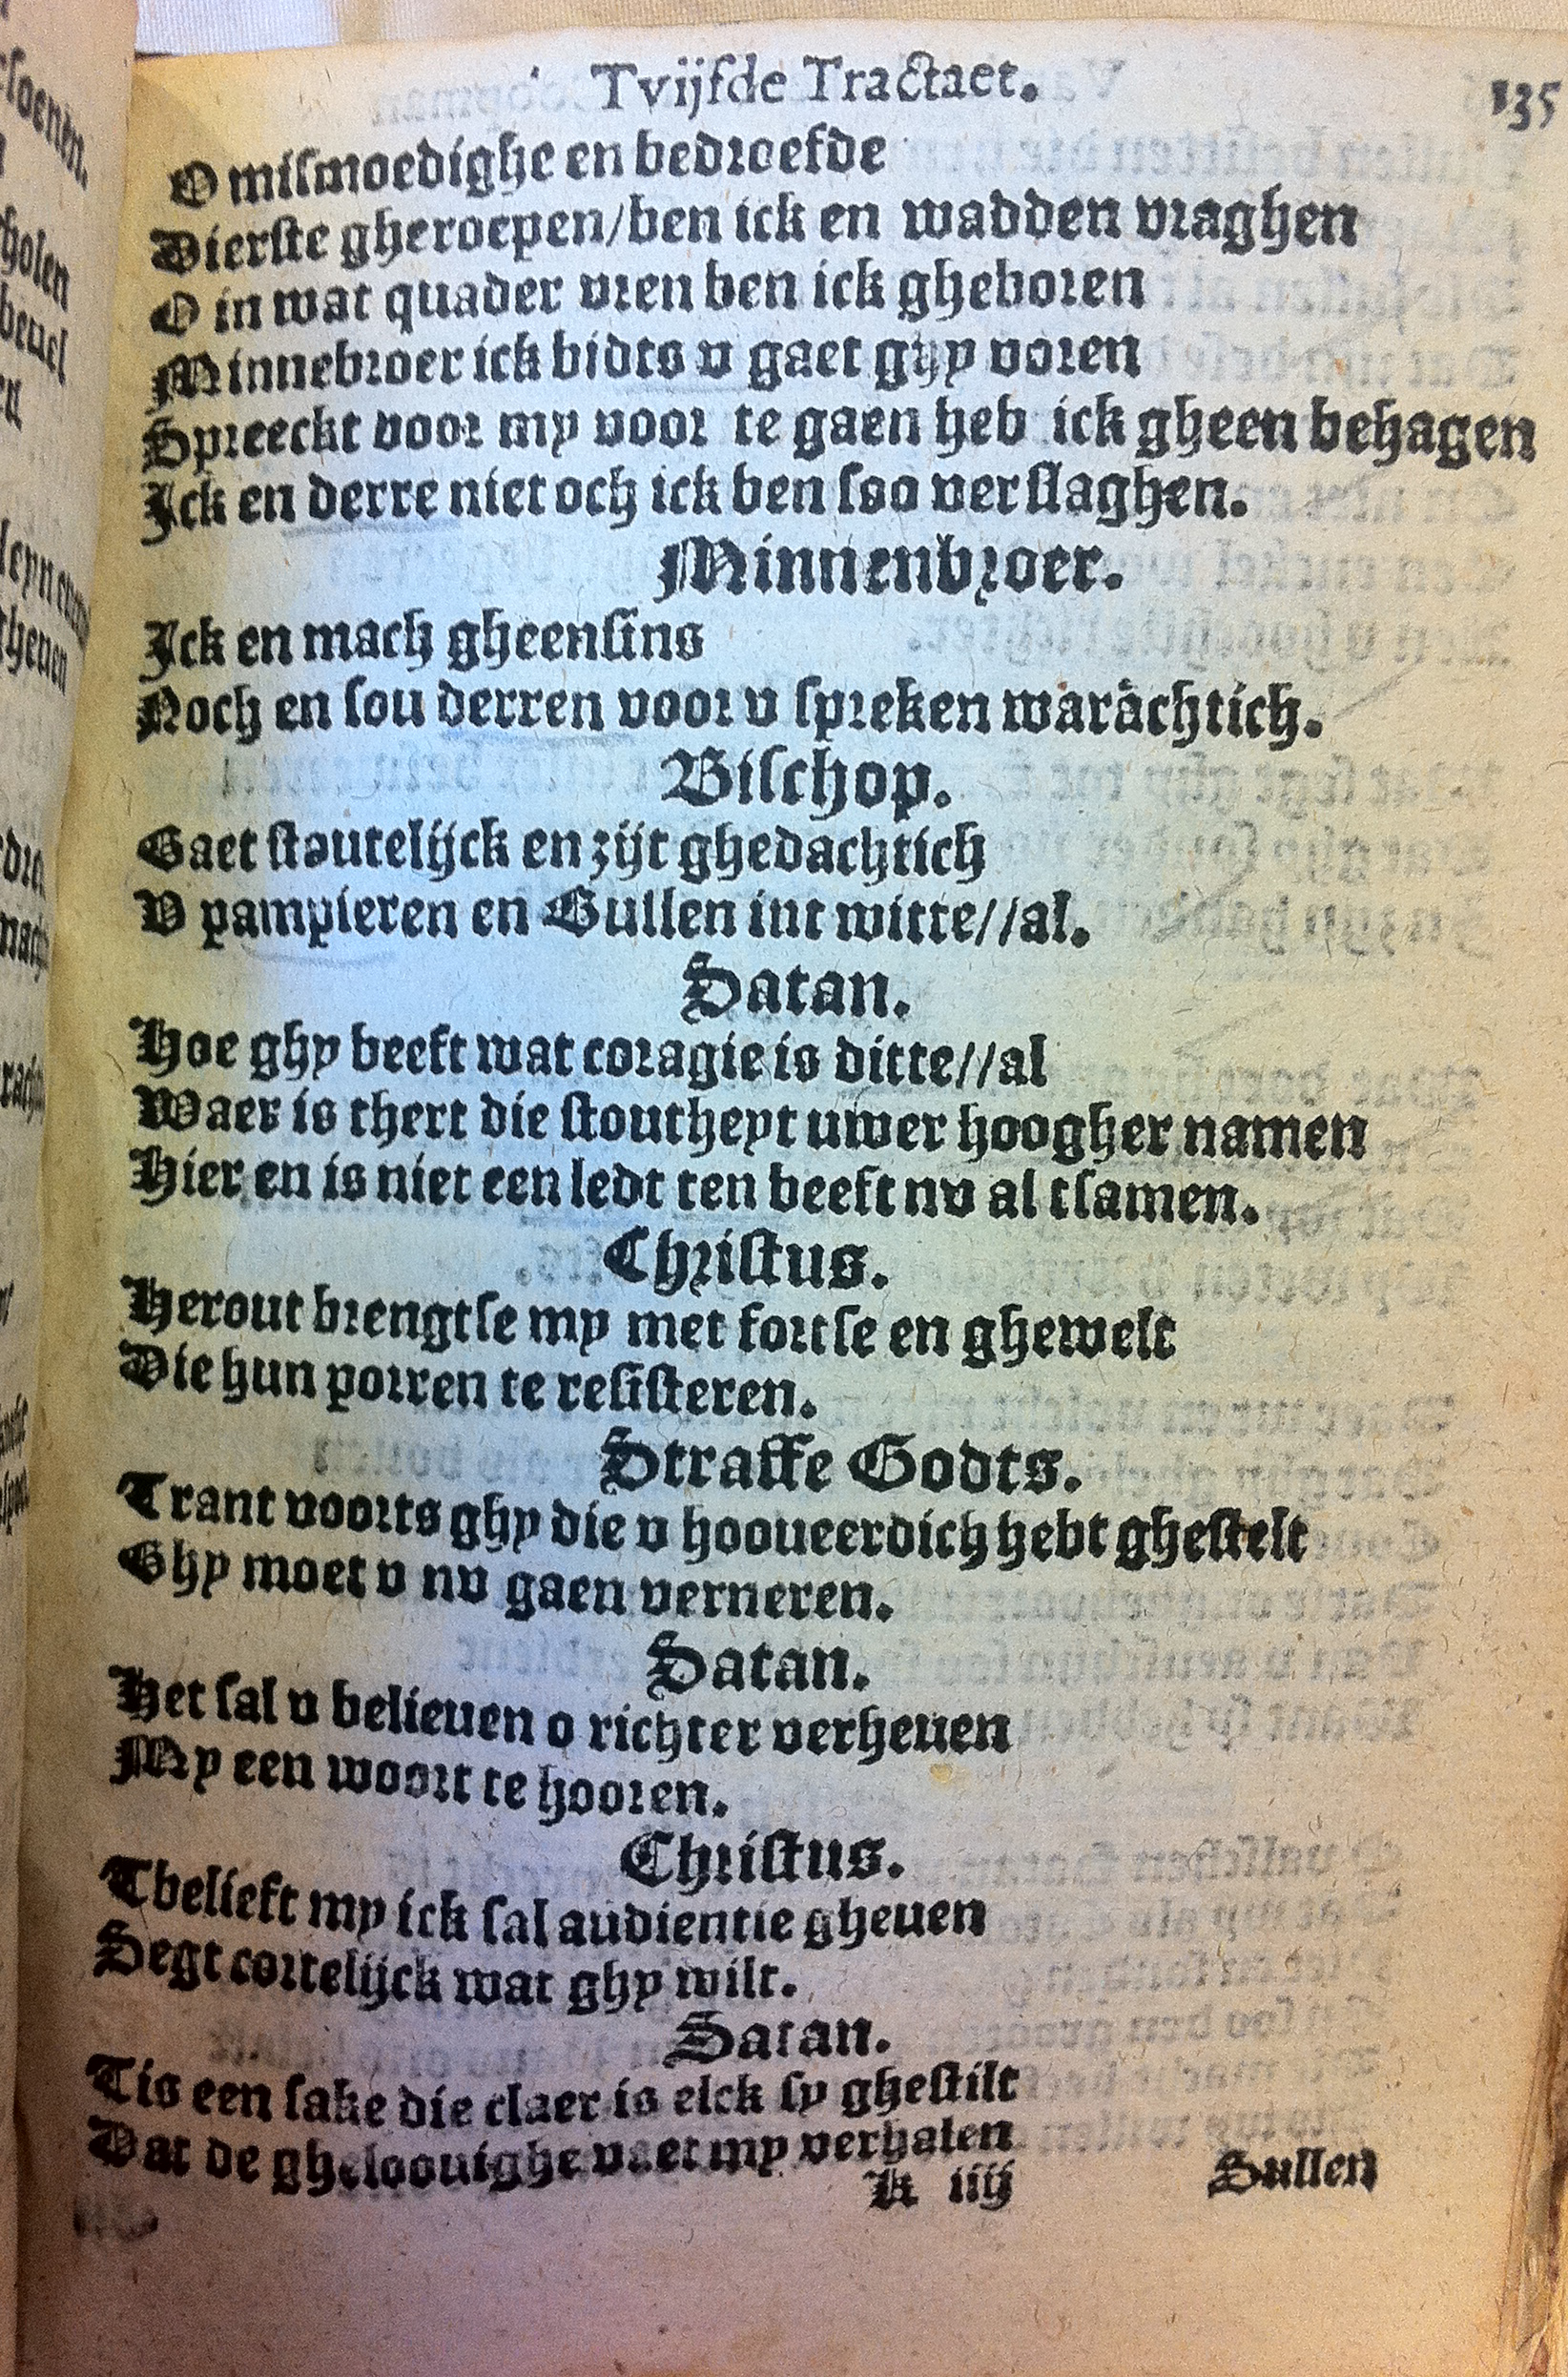 Tvijfde Tractaet. 135
O mismoedighe en bedroefde
Dierste gheroepen/ben ick en wadden vraghen
O in wat quader vren ben ick gheboren
Minnebroer ick bidts v gaet ghy voren
Spreeckt voor my voor te gaen heb ick gheen behagen
Ick en derre niet och ick ben soo verslaghen.
Minnenbroer.
Ick en mach gheensins
Noch en sou derren voor v spreken warachtich.
Bischop.
Gaet stoutelijck en zijt ghedachtich
V pampieren en Bullen int witte//al.
Satan.
Hoe ghy beeft wat coragie is ditte//al
Waer is thert die stoutheyt uwer hoogher namen
Hier en is niet een ledt ten beeft nv al tsamen.
Christus.
Herout brengtse my met fortse en ghewelt
Die hun porren te resisteren.
Straffe Godts.
Trant voorts ghy die v hooueerdich hebt ghestelt
Ghy moet v nv gaen verneren.
Satan.
Het sal v belieuen o richter verheuen
My een woort te hooren.
Christus.
Tbelieft my ick sal audientie gheuen
Segt cortelijck wat ghy wilt.
Satan.
Tis een sake die claer is elck sy ghestilt
Dat de gheloouighe vaet my verhalen
K iiij Sullen